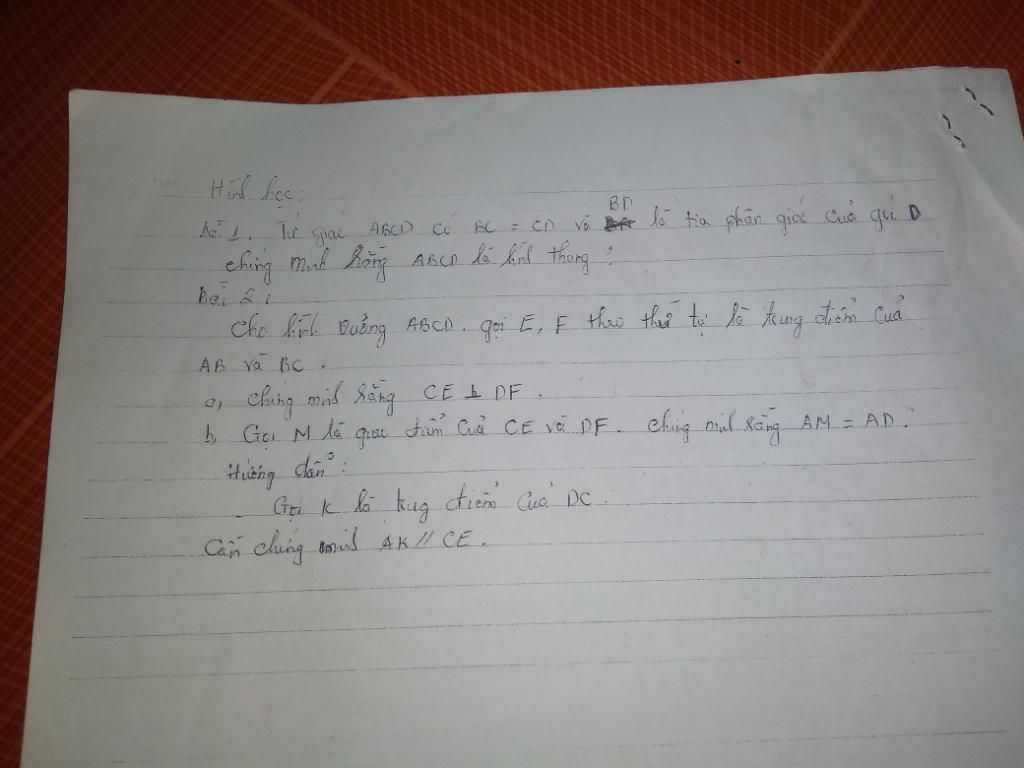 Hình học:
bài 1. Tứ giác ABCD có BC = CD và BD là tia phân giác của góc D
chứng minh rằng ABCD là hình thang?
bài 2:
Cho hình vuông ABCD. gọi E, F theo thứ tự là trung điểm của
AB và BC.
a, chứng minh rằng CE ⊥ DF.
b, Gọi M là giao điểm của CE và DF. chứng minh rằng AM = AD.
Hướng dẫn:
Gọi K là trung điểm của DC.
Cần chứng minh AK // CE.